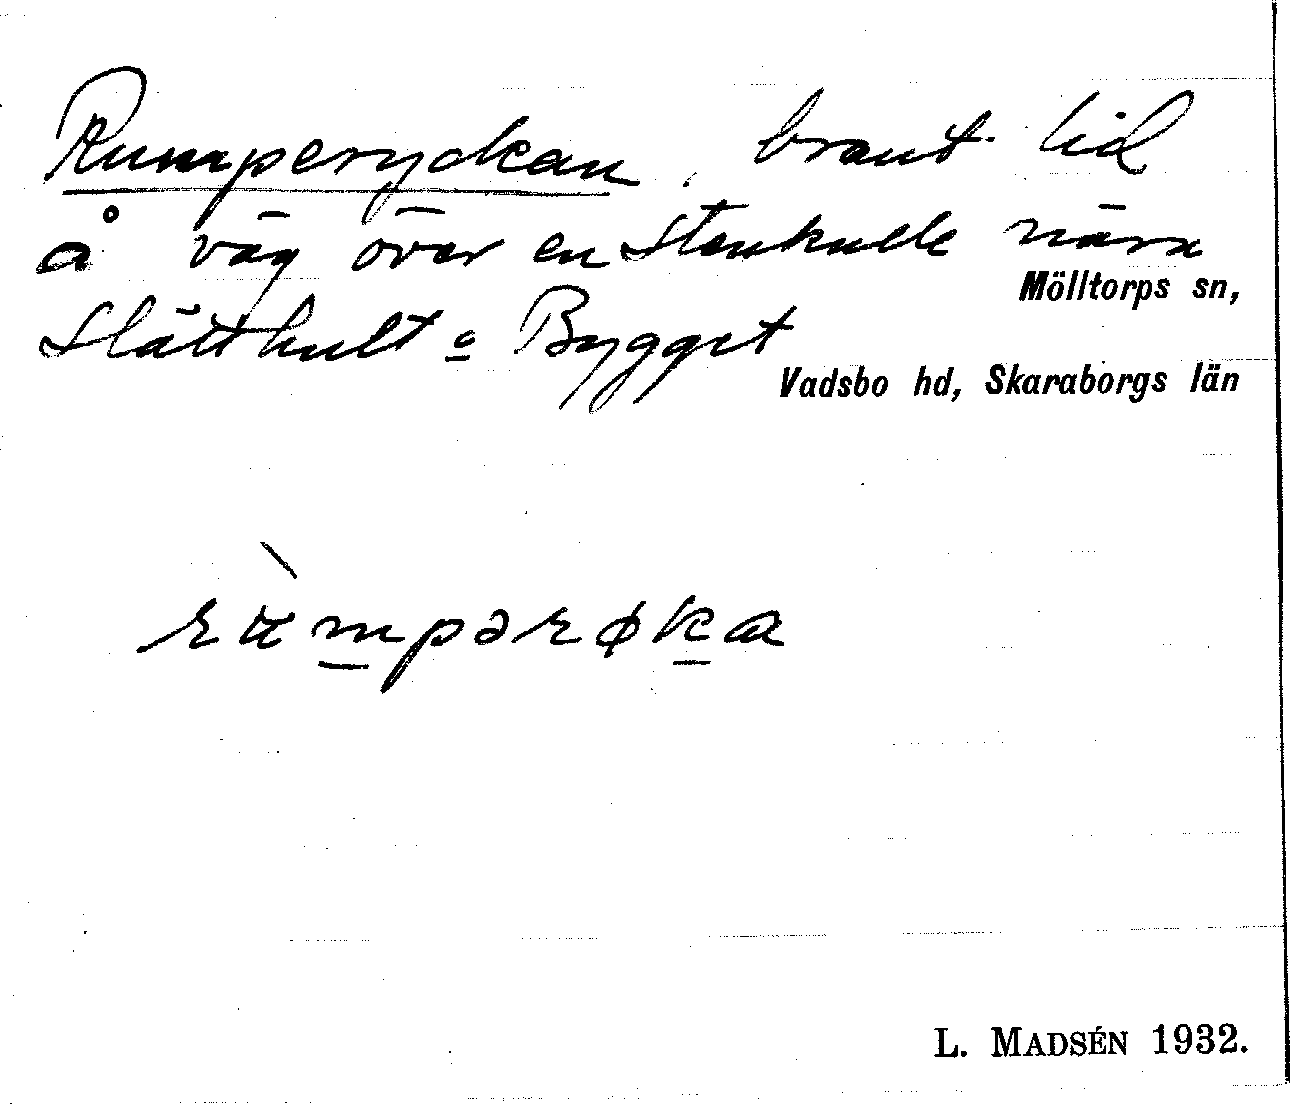 Rumperyckan, brant lid
å väg över en stenkulle nära
Mölltorps sn,
Slätthult o Bygget
Vadsbo hd, Skaraborgs län
rùmpərøka
L. MADSÉN 1932.